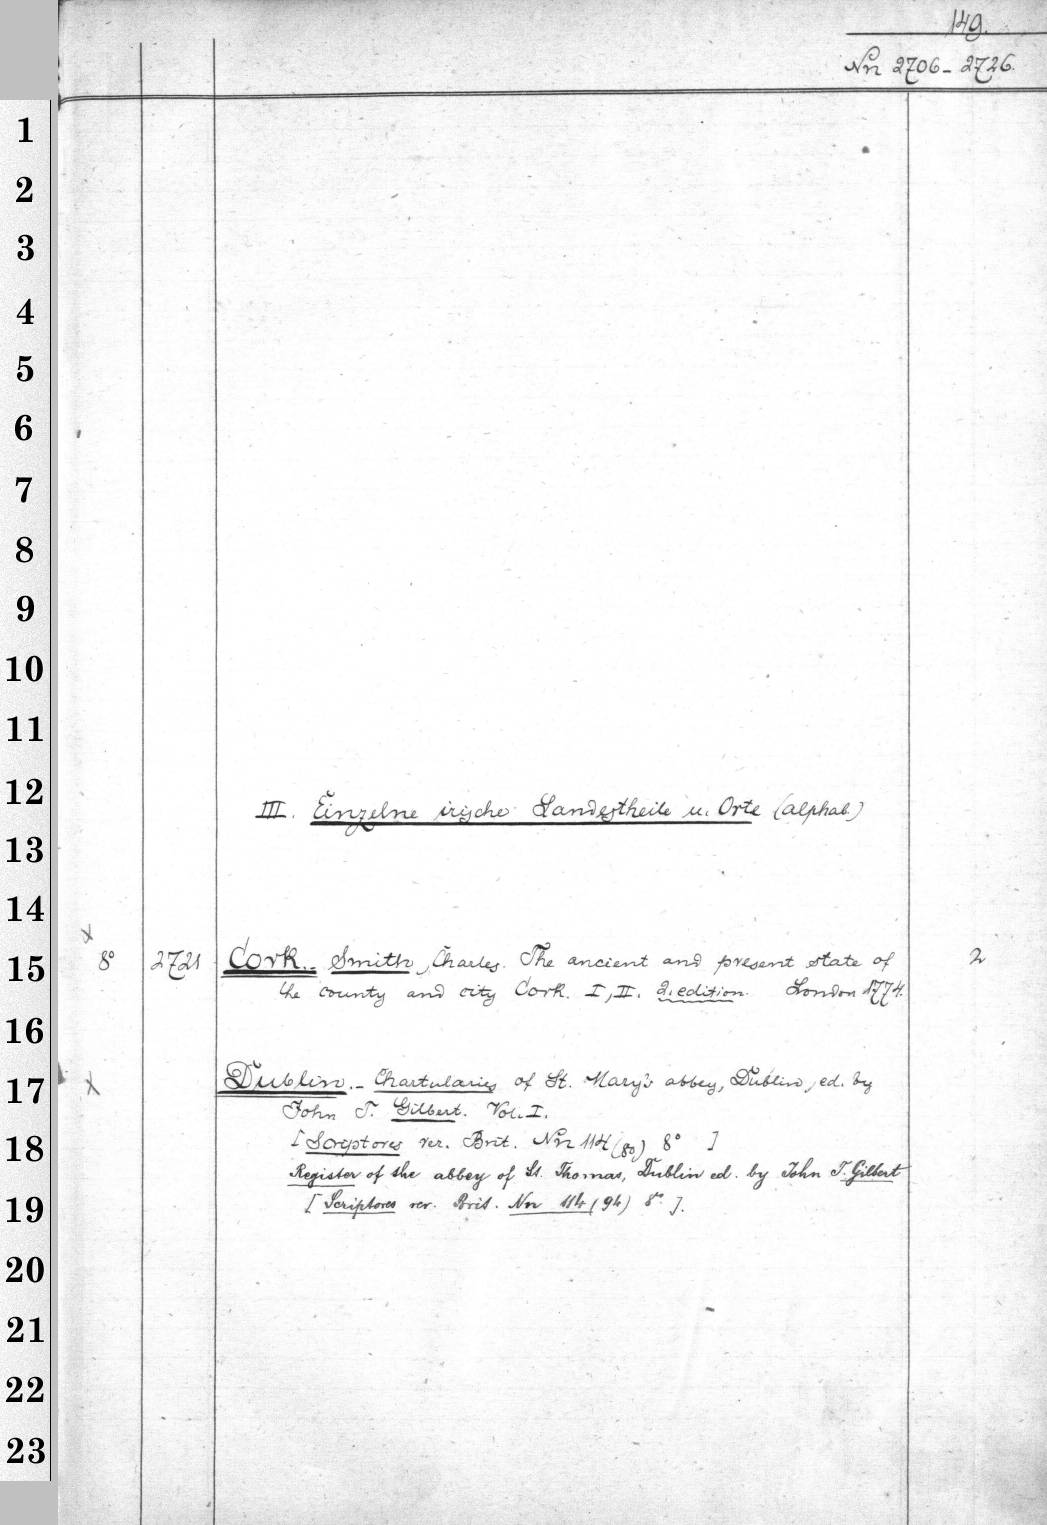 149.
Nn 2706-2726.
1
2
3
4
5
6
7
8
9
10
11
12
III. Einzelne irische Landestheile u. Orte (alphab.)
13
14
x
15 8° 2721 Cork.. Smith, Charles. The ancient and present state of 2
the county and city Cork. I, II. 2. edition. London 1774.
16
17 x Dublin.- Chartularies of St. Mary's abbey, Dublin, ed. by
John T. Gilbert. Vol. I.
18 [Scriptores rer. Brit. Nn 114 (80) 8° ]
Register of the abbey of St. Thomas, Dublin ed. by John T. Gilbert
19 [Scriptores rer. Brit. Nn 114 (94) 8°.].
20
21
22
23